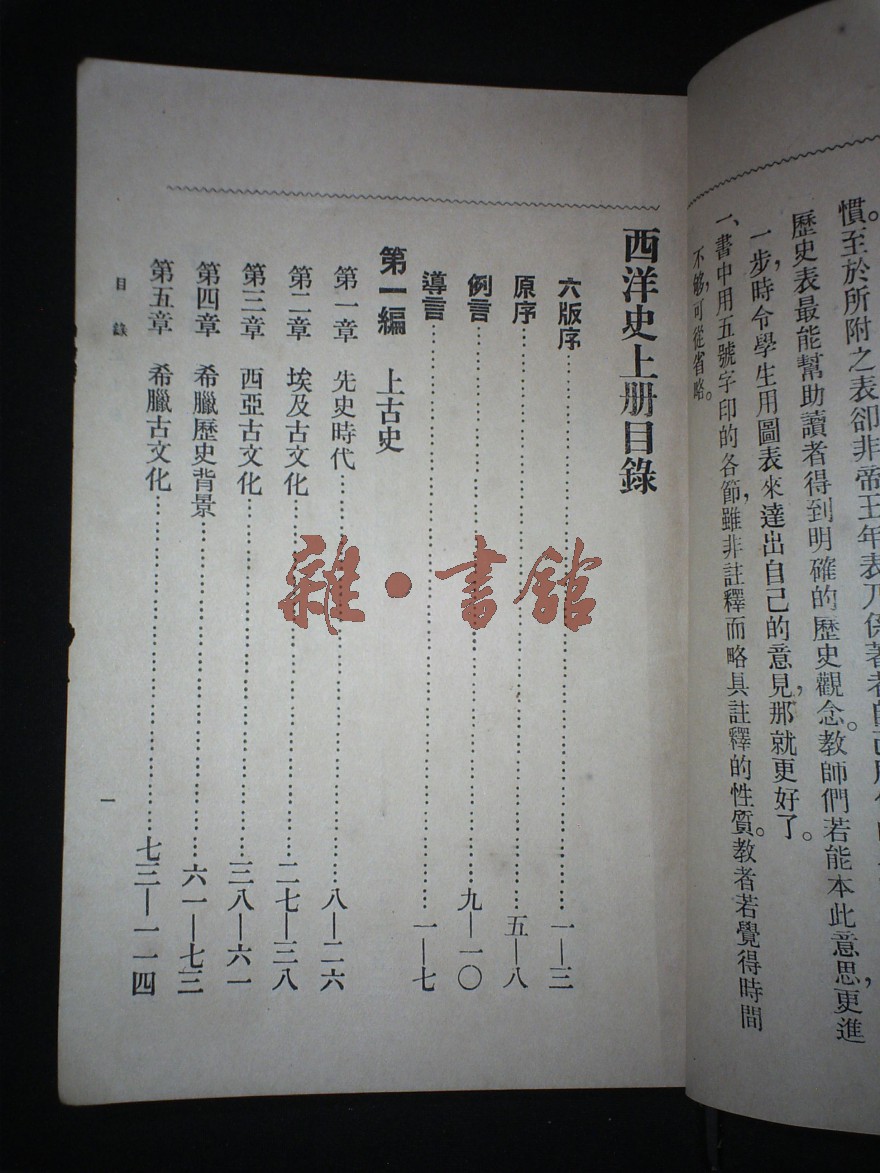 慣。至於所附之表卻非帝王年表乃係著者自己
歷史表最能幫助讀者得到明確的歷史觀念。教師們若能本此意思,更進
一步,時令學生用圖表來達出自己的意見,那就更好了。
一、書中用五號字印的各節,雖非註釋而略具註釋的性質。教者若覺得時間
不够,可從省略。
西洋史上册目錄
六版序……一—三
原序……五—八
例言……九—一〇
導言……一—七
第一編 上古史
第一章 先史時代……八—二六
第二章 埃及古文化……二七—三八
第三章 西亞古文化……三八—六一
第四章 希臘歷史背景……六一—七三
第五章 希臘古文化……七三—一一四
目錄
一
雜·書館